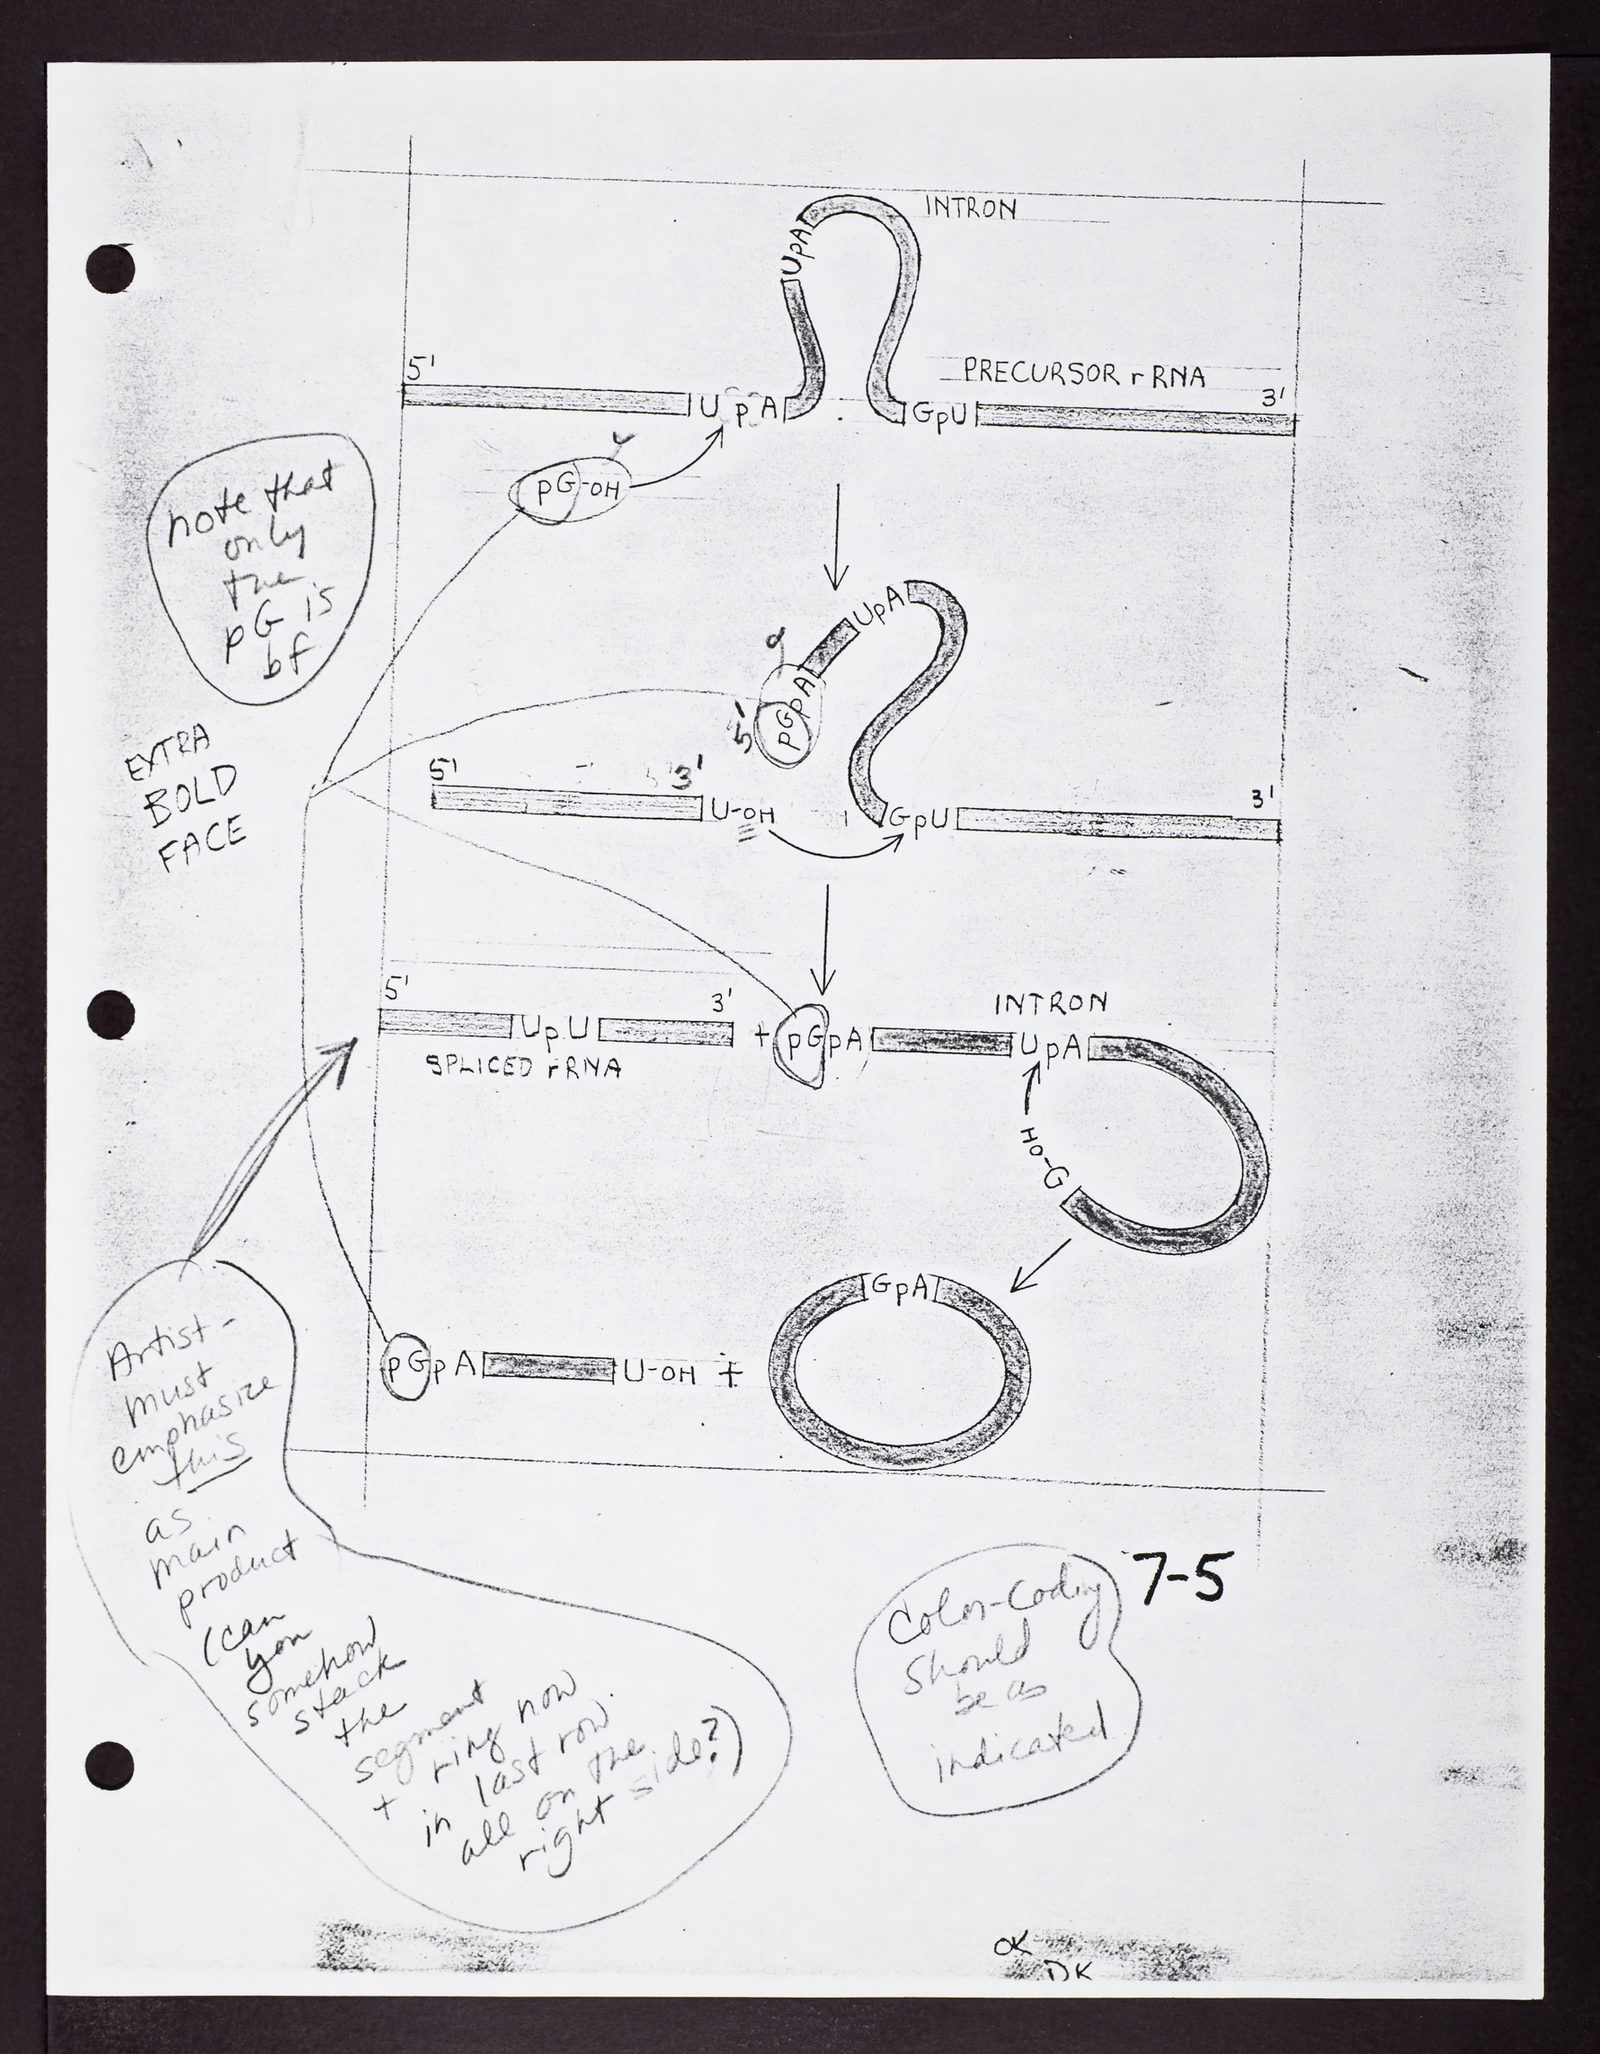 INTRON
UpA
5'
PRECURSOR rRNA
3'
UpA
GpU
pG-OH
note that
only
the
pG is
bf
EXTRA
BOLD
FACE
UpA
pGpA
5'
5'
3'
U-OH
GpU
3'
5'
3'
UpU
SPLICED rRNA
+
pGpA
INTRON
UpA
HO-G
GpA
pGpA
U-OH
+
Artist -
must
emphasize
this
as
main
product
(can
you
somehow
stack
the
segment
+ ring now
in last row
all on the
right side?)
7-5
Color-Coding
should
be as
indicated
OK
DK